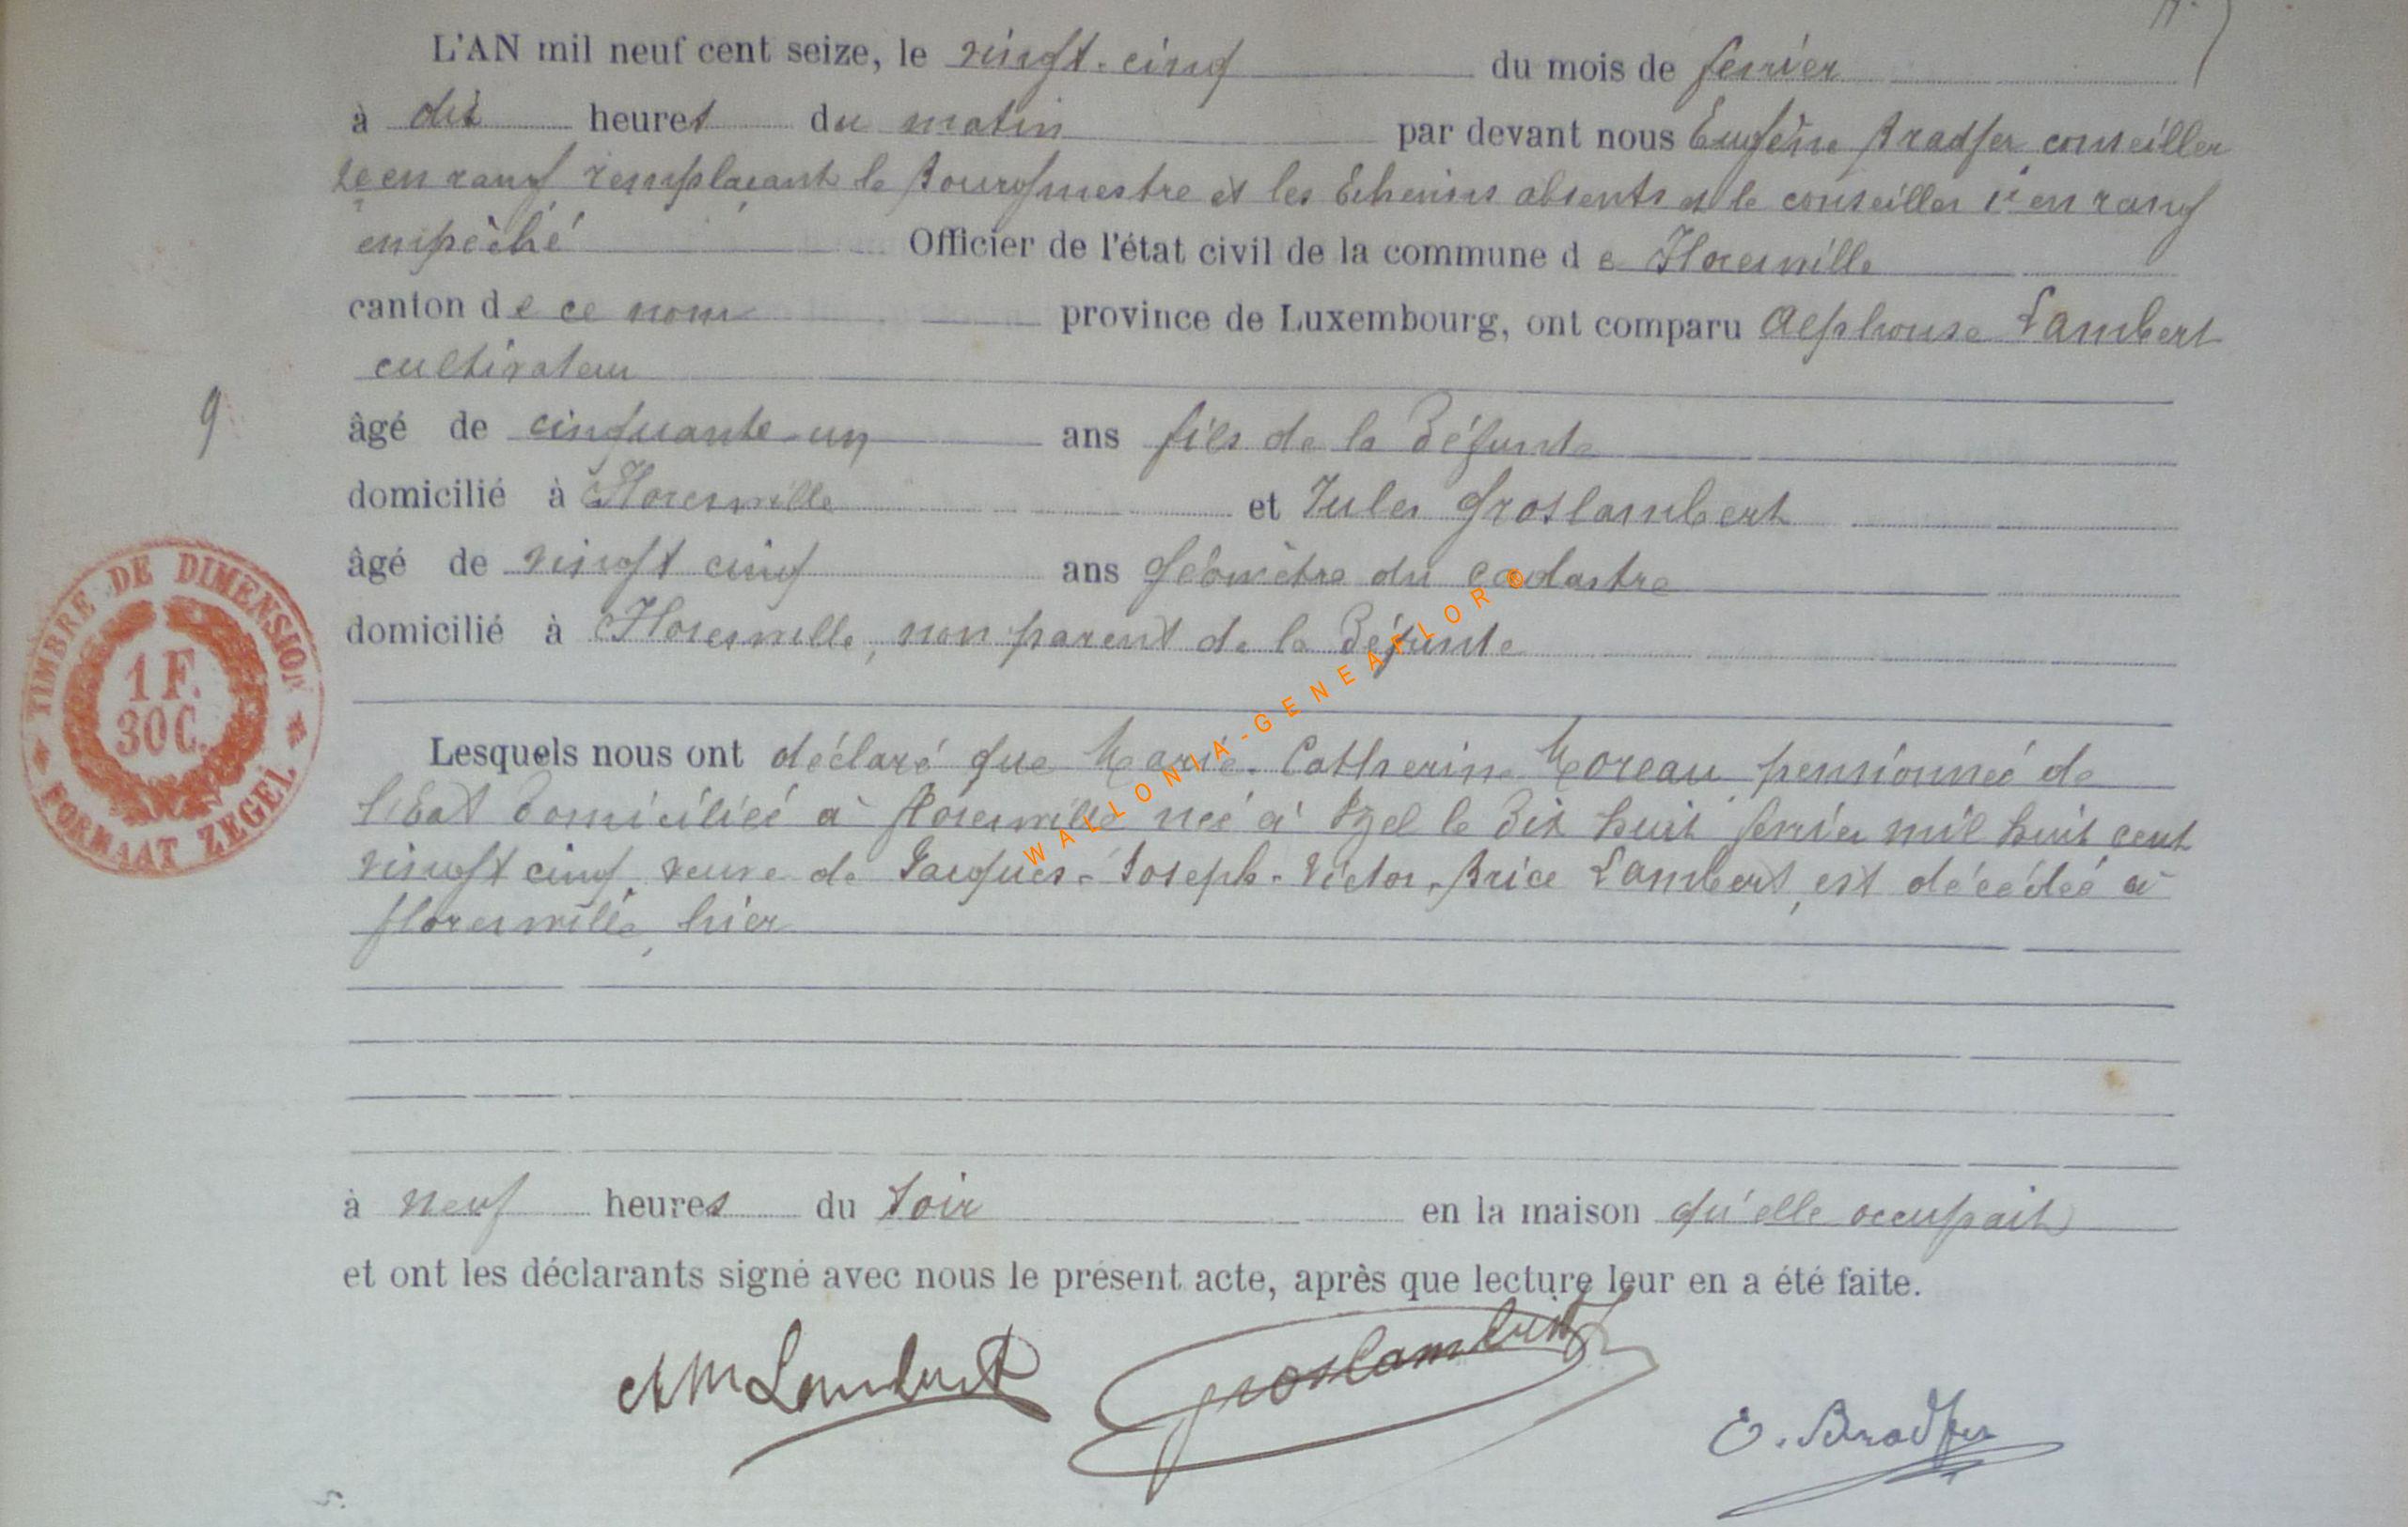 L'AN mil neuf cent seize, le vingt-cinq du mois de février
à dix heures du matin par devant nous Eugène Bradfer, conseiller
2e en rang remplaçant le Bourgmestre et les Echevins absents et le conseiller 1er en rang
empêché Officier de l'état civil de la commune de Florenville
canton de ce nom province de Luxembourg, ont comparu Alphonse Lambert
cultivateur
9
âgé de cinquante-un ans fils de la Défunte
domicilié à Florenville et Jules Groslambert
âgé de vingt cinq ans géomètre du cadastre
domicilié à Florenville, non parent de la Défunte
TIMBRE DE DIMENSION
1 F.
30 C.
FORMAAT ZEGEL
WALLONIA-GENEAFLOR©
Lesquels nous ont déclaré que Marie-Catherine Moreau, pensionneé de
l'Eat domiciliéé à florenville neé à Izel le Dix huit février mil huit cent
vingt cinq, veuve de Jacques-Joseph-Victor-Brice Lambert, est décédeé à
florenville, hier
à neuf heures du soir en la maison qu'elle occupait
et ont les déclarants signé avec nous le présent acte, après que lecture leur en a été faite.
Lambert Groslambert
E. Bradfer